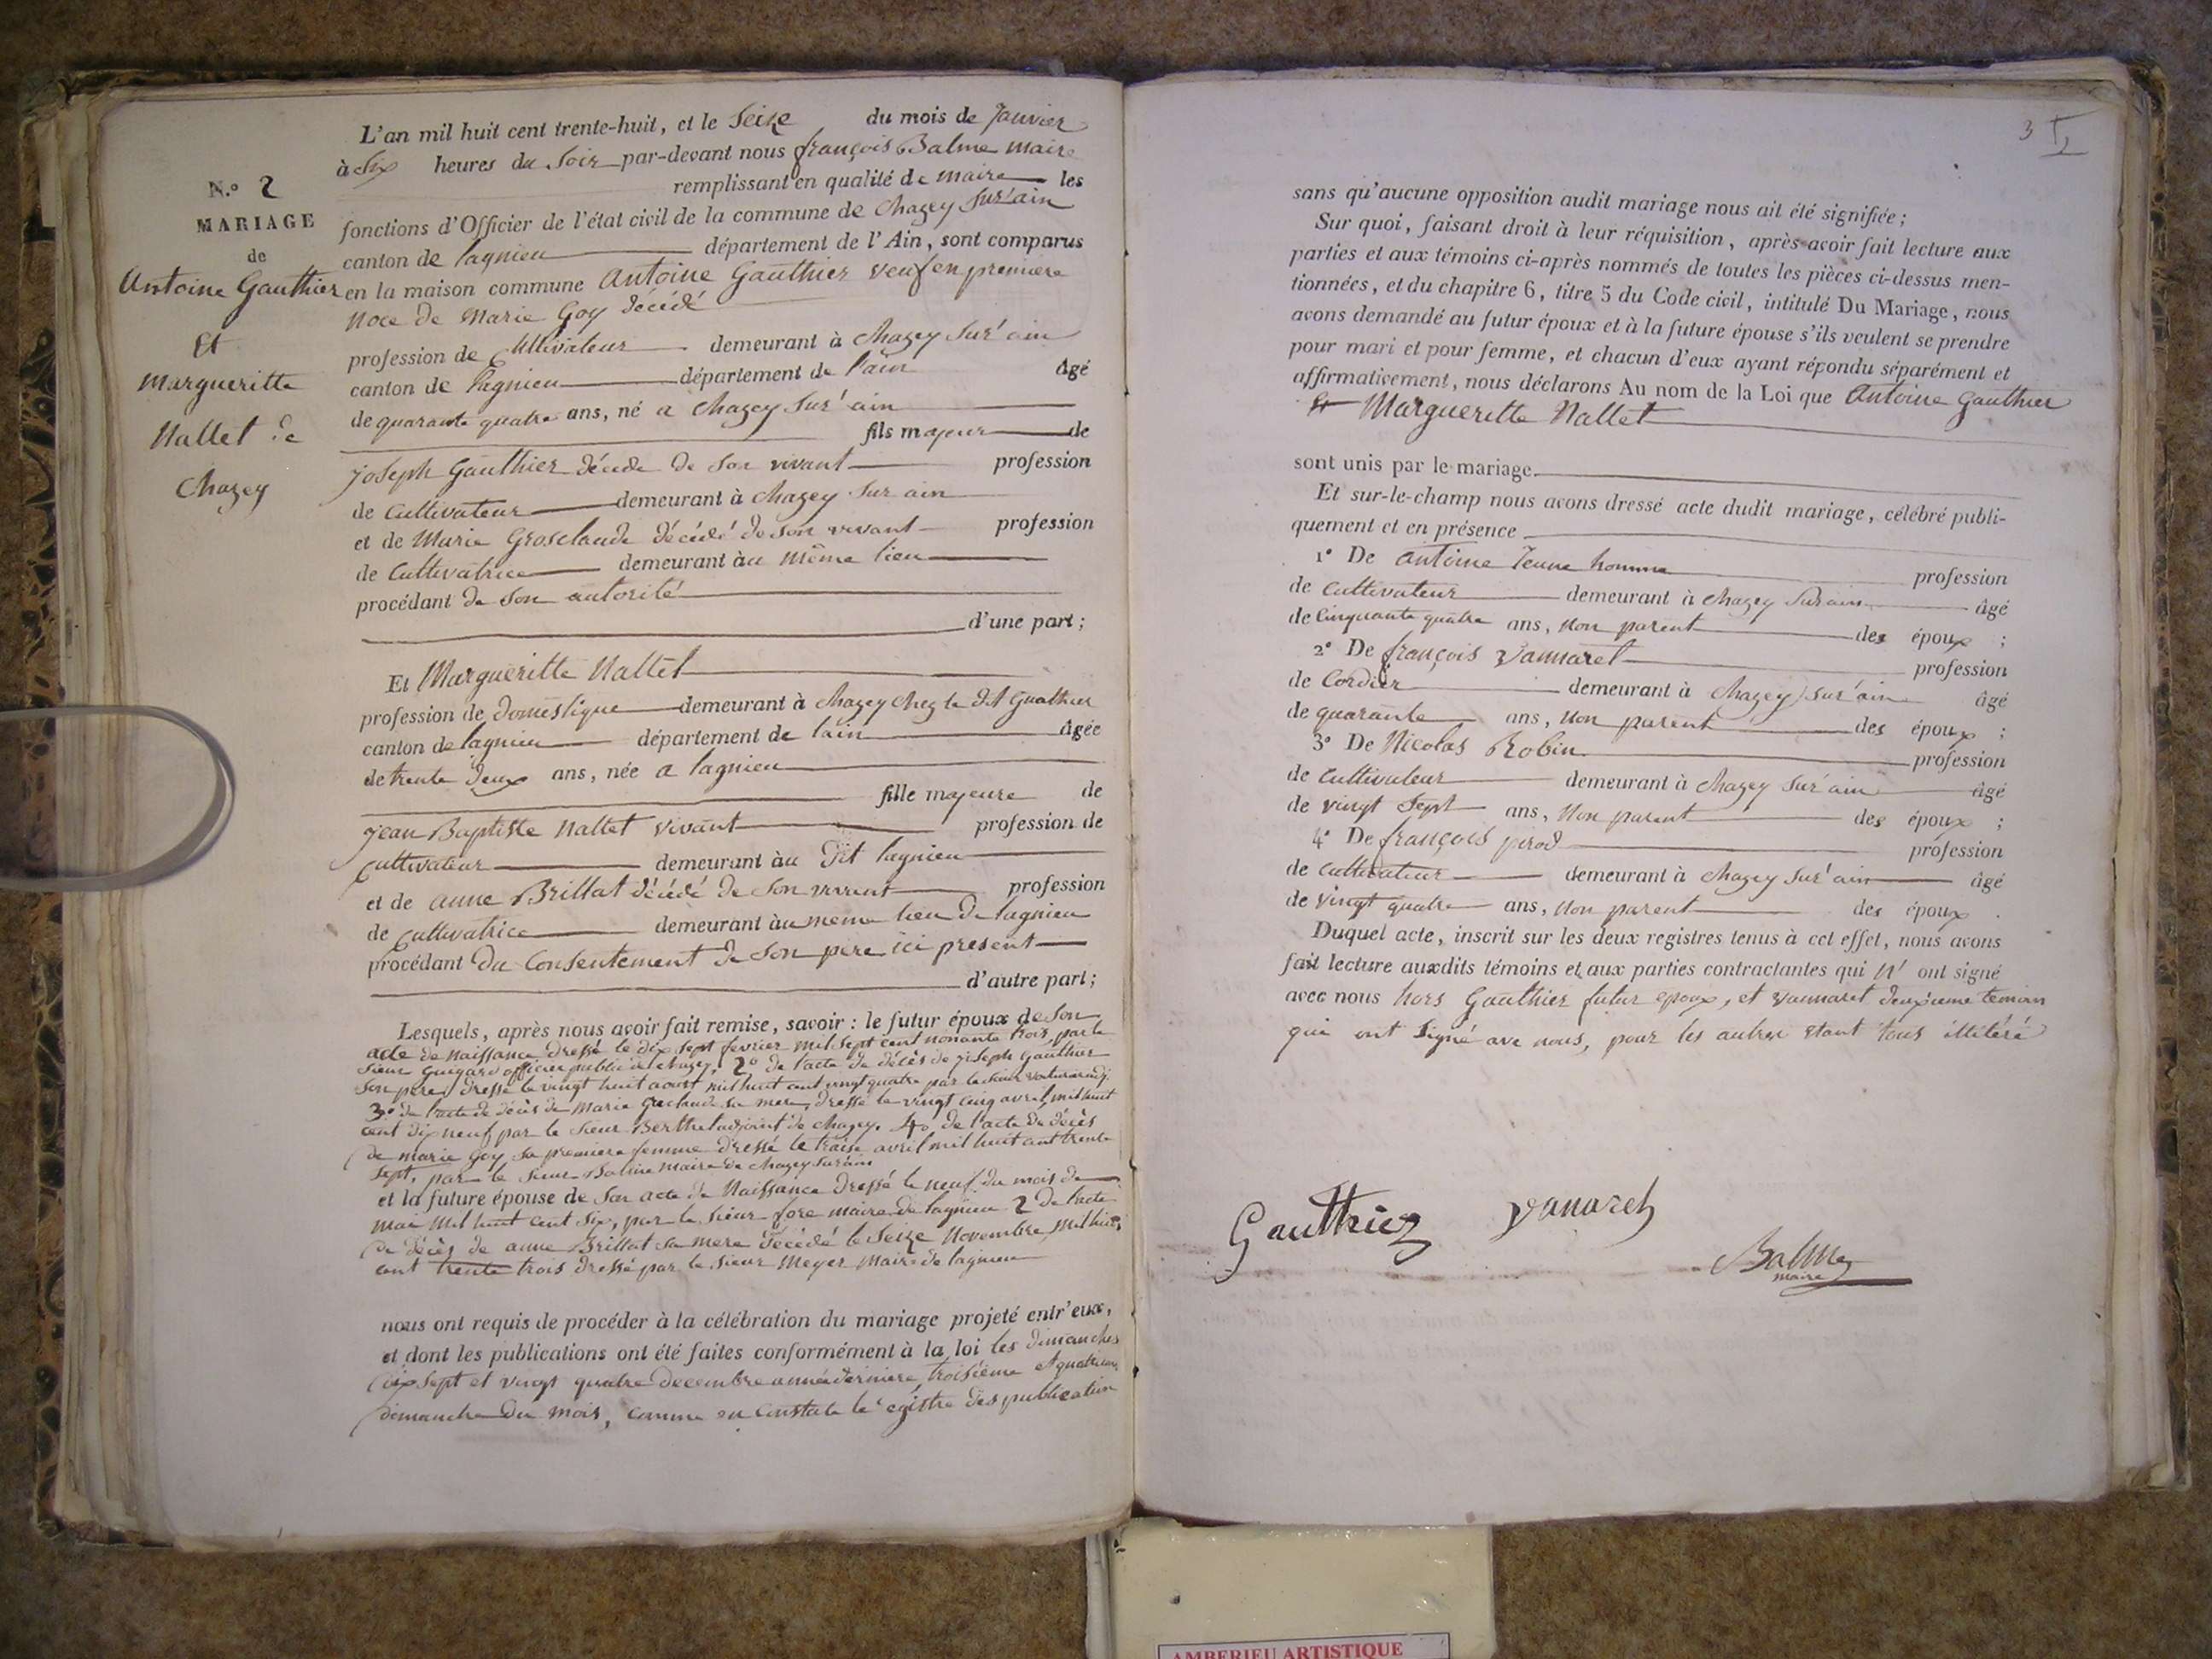 N.º 2
MARIAGE
de
Antoine Gauthier
Et
Margueritte
Nallet de
Chazey
L'an mil huit cent trente-huit, et le Seize du mois de Janvier
à Six heures du Soir par-devant nous françois Balme maire
remplissant en qualité de maire les
fonctions d'Officier de l'état civil de la commune de Chazey Sur'ain
canton de lagnieu département de l'Ain, sont comparus
en la maison commune Antoine Gauthier veuf en premiere
noce de Marie Goy décédé
profession de Cultivateur demeurant à Chazey Sur'ain
canton de lagnieu département de l'ain âgé
de quarante quatre ans, né a Chazey Sur'ain
fils majeur de
Joseph Gauthier décédé de Son vivant profession
de Cultivateur demeurant à Chazey Sur ain
et de Marie Grosclaude décédé de son vivant profession
de Cultivatrice demeurant àu même lieu
procédant de Son autorité
d'une part;
Et Margueritte Nallet
profession de domestique demeurant à Chazey chez le dit Gauthier
canton de lagnieu département de lain âgée
de trente deux ans, née a lagnieu
fille majeure de
Jean Baptiste Nallet vivant profession de
Cultivateur demeurant àu dit lagnieu
et de anne Brillat décédé de Son vivant profession
de Cultivatrice demeurant àu meme lieu de lagnieu
procédant du Consentement de Son pere ici present
d'autre part;
Lesquels, après nous avoir fait remise, savoir : le futur époux de Son
acte de naissance dressé le dix sept fevrier mil sept cent nonante trois, par le
Sieur officier public de Chazey, 2º de l'acte de décès de joseph Gauthier
Son pere, dressé le vingt huit aoust mil huit cent vingt quatre par le Sieur
3º de l'acte de décès de Marie Grosclaude sa mere, dressé le vingt cinq avril mil huit
cent dix neuf par le Sieur Berthet adjoint de Chazey. 4º de l'acte de décès
de marie Goy sa premiere femme dressé le traise avril mil huit cent trente
Sept, par le Sieur Balme Maire de Chazey Sur'ain
et la future épouse de Son acte de Naissance dressé le neuf du mois de
mai mil huit cent Six, par le Sieur fore maire de lagnieu 2 de l'acte
de décès de anne Brillat Sa mere décédé le Seize Novembre mil huit
cent trente trois dressé par le Sieur Meyer Maire de lagnieu
nous ont requis de procéder à la célébration du mariage projeté entr'eux,
et dont les publications ont été faites conformément à la loi les dimanches
dix Sept et vingt quatre decembre année derniere, troisieme et quatrieme
dimanche du mois, comme en Constate le registre des publication
3
sans qu'aucune opposition audit mariage nous ait été signifiée;
Sur quoi, faisant droit à leur réquisition, après avoir fait lecture aux
parties et aux témoins ci-après nommés de toutes les pièces ci-dessus men-
tionnées, et du chapitre 6, titre 5 du Code civil, intitulé Du Mariage, nous
avons demandé au futur époux et à la future épouse s'ils veulent se prendre
pour mari et pour femme, et chacun d'eux ayant répondu séparément et
affirmativement, nous déclarons Au nom de la Loi que Antoine Gauthier
Et Margueritte Nallet
sont unis par le mariage.
Et sur-le-champ nous avons dressé acte dudit mariage, célébré publi-
quement et en présence
1º De Antoine Jeune homme profession
de Cultivateur demeurant à Chazey Sur ain âgé
de Cinquante quatre ans, Non parent des époux ;
2º De françois Vannaret profession
de Cordier demeurant à Chazey Sur'ain âgé
de quarante ans, Non parent des époux ;
3º De Nicolas Robin profession
de Cultivateur demeurant à Chazey Sur'ain âgé
de vingt Sept ans, Non parent des époux ;
4º De françois pirod profession
de Cultivateur demeurant à Chazey Sur'ain âgé
de vingt quatre ans, Non parent des époux .
Duquel acte, inscrit sur les deux registres tenus à cet effet, nous avons
fait lecture auxdits témoins et aux parties contractantes qui N' ont signé
avec nous hors Gauthier futur epoux, et Vannaret deuxieme temoin
qui ont Signé avec nous, pour les autres étant tous illétéré
Gauthier
Vanaret
Balme
maire
AMBERIEU ARTISTIQUE